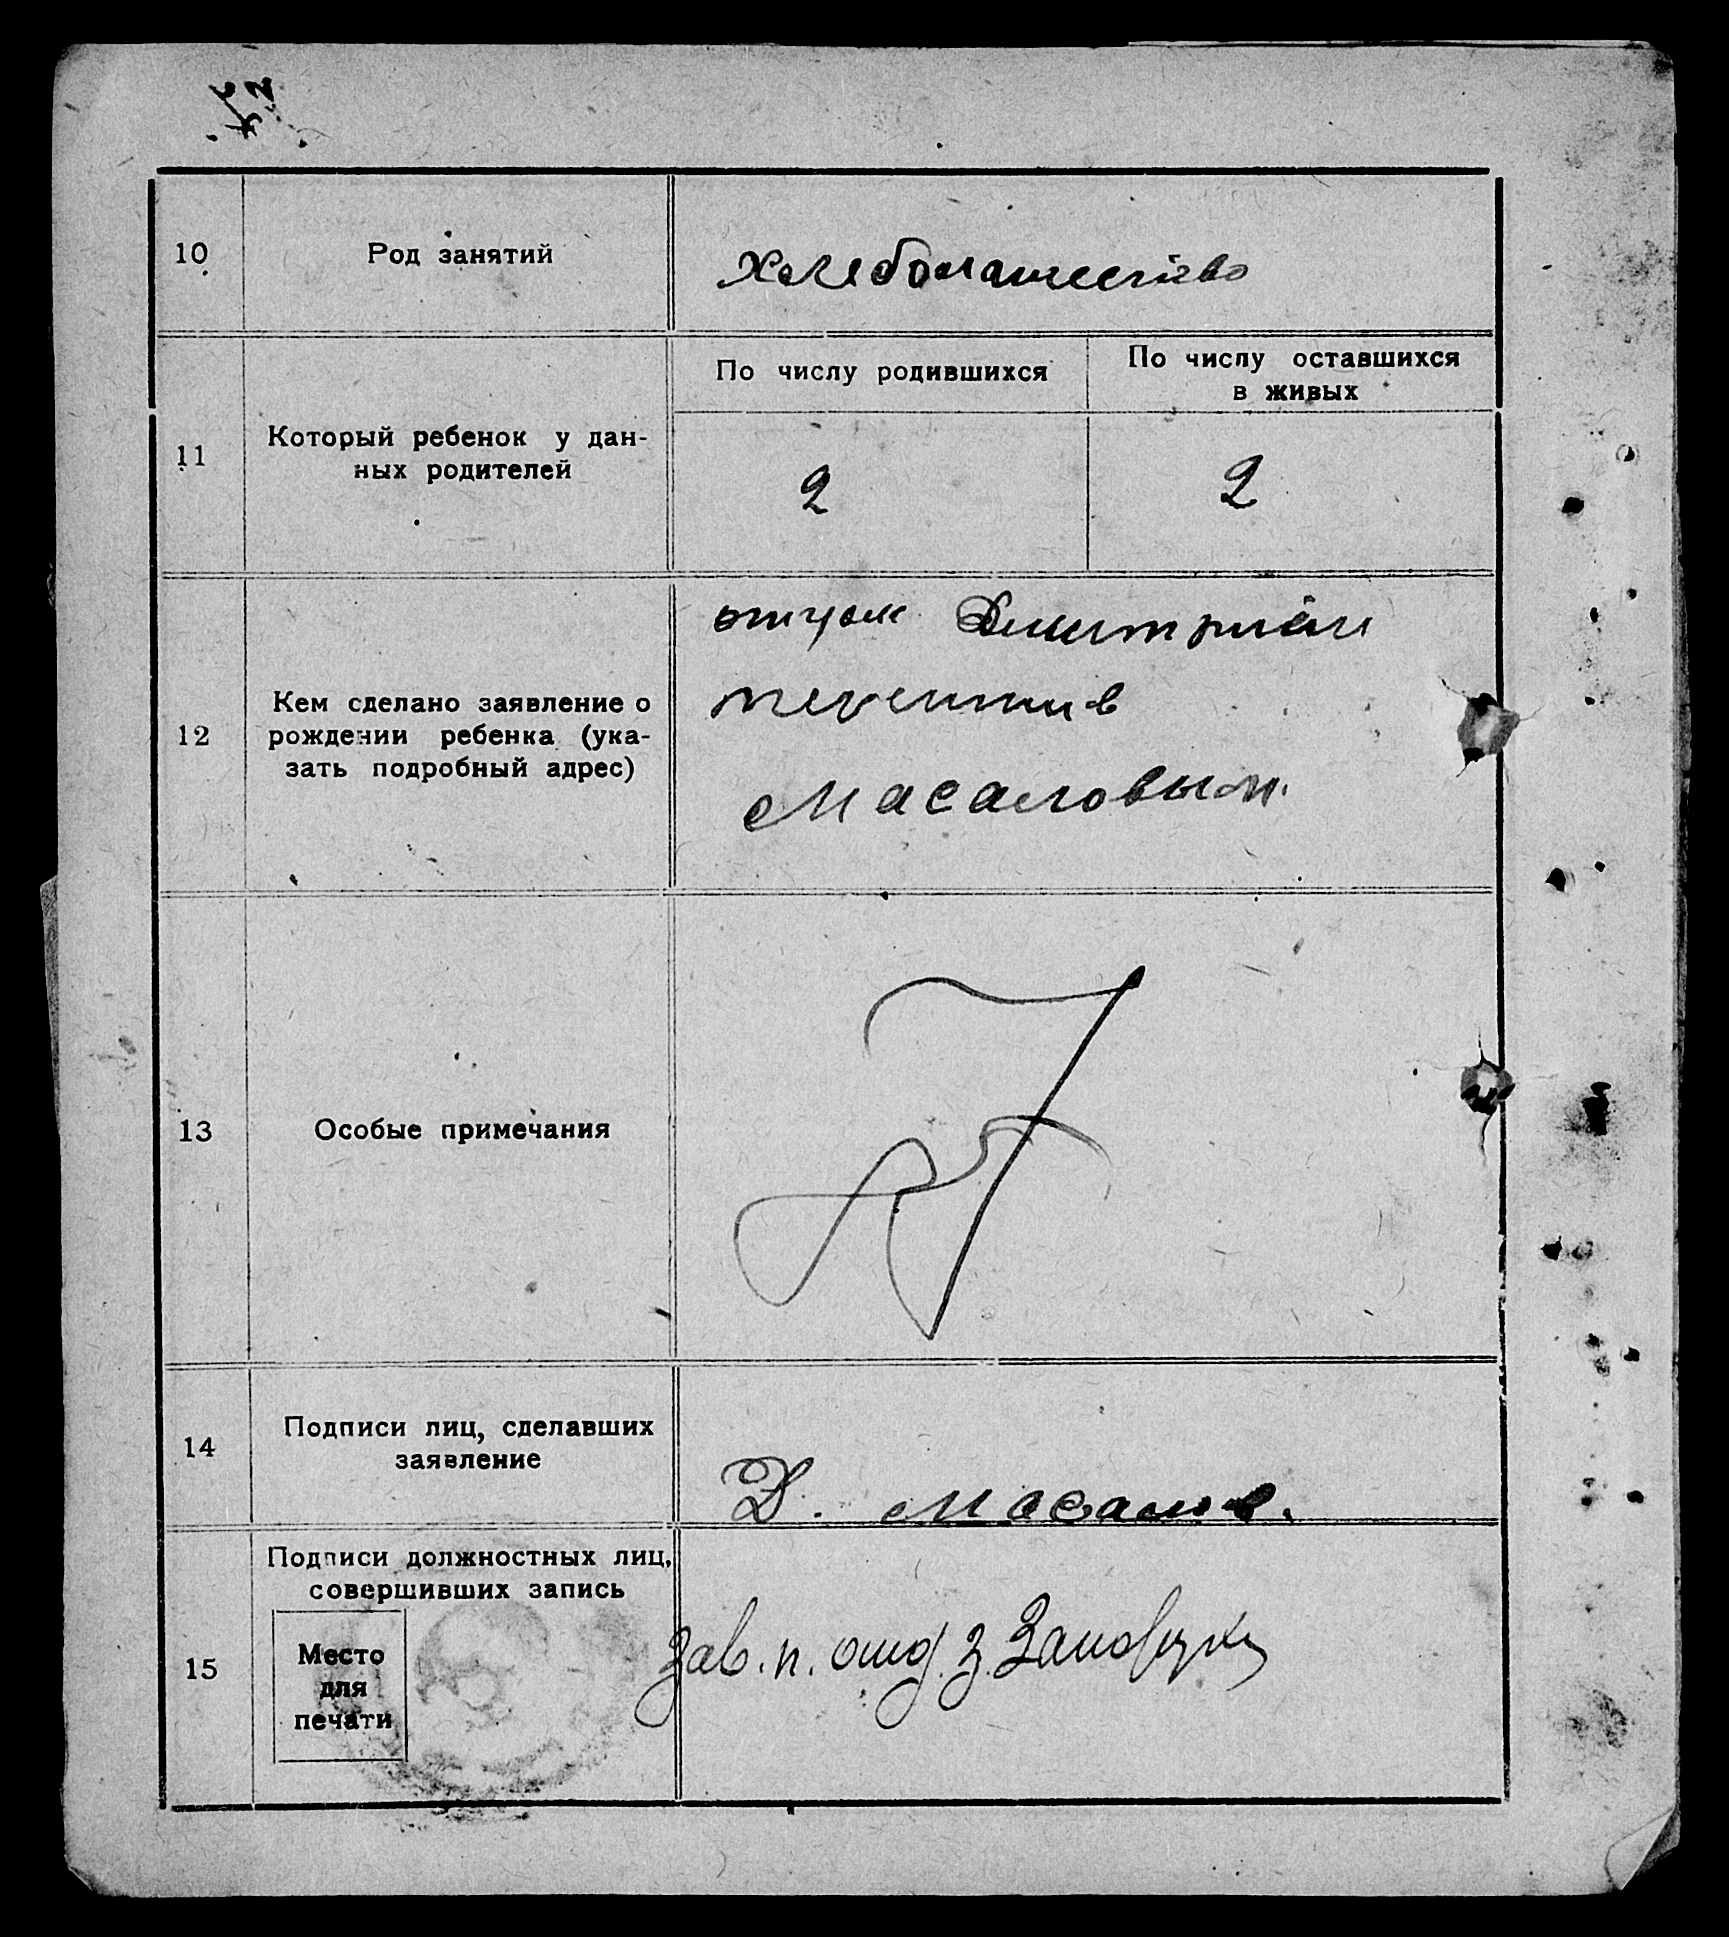 10
Род занятий
хлебопашество
11
Который ребенок у дан-
ных родителей
По числу родившихся
По числу оставшихся
в живых
2
2
12
Кем сделано заявление о
рождении ребенка (ука-
зать подробный адрес)
отцом Дмитрием
Масаловым.
13
Особые примечания
14
Подписи лиц, сделавших
заявление
Д. Масалов.
15
Подписи должностных лиц,
совершивших запись
Место
для
печати
Зав. п. отд. З.